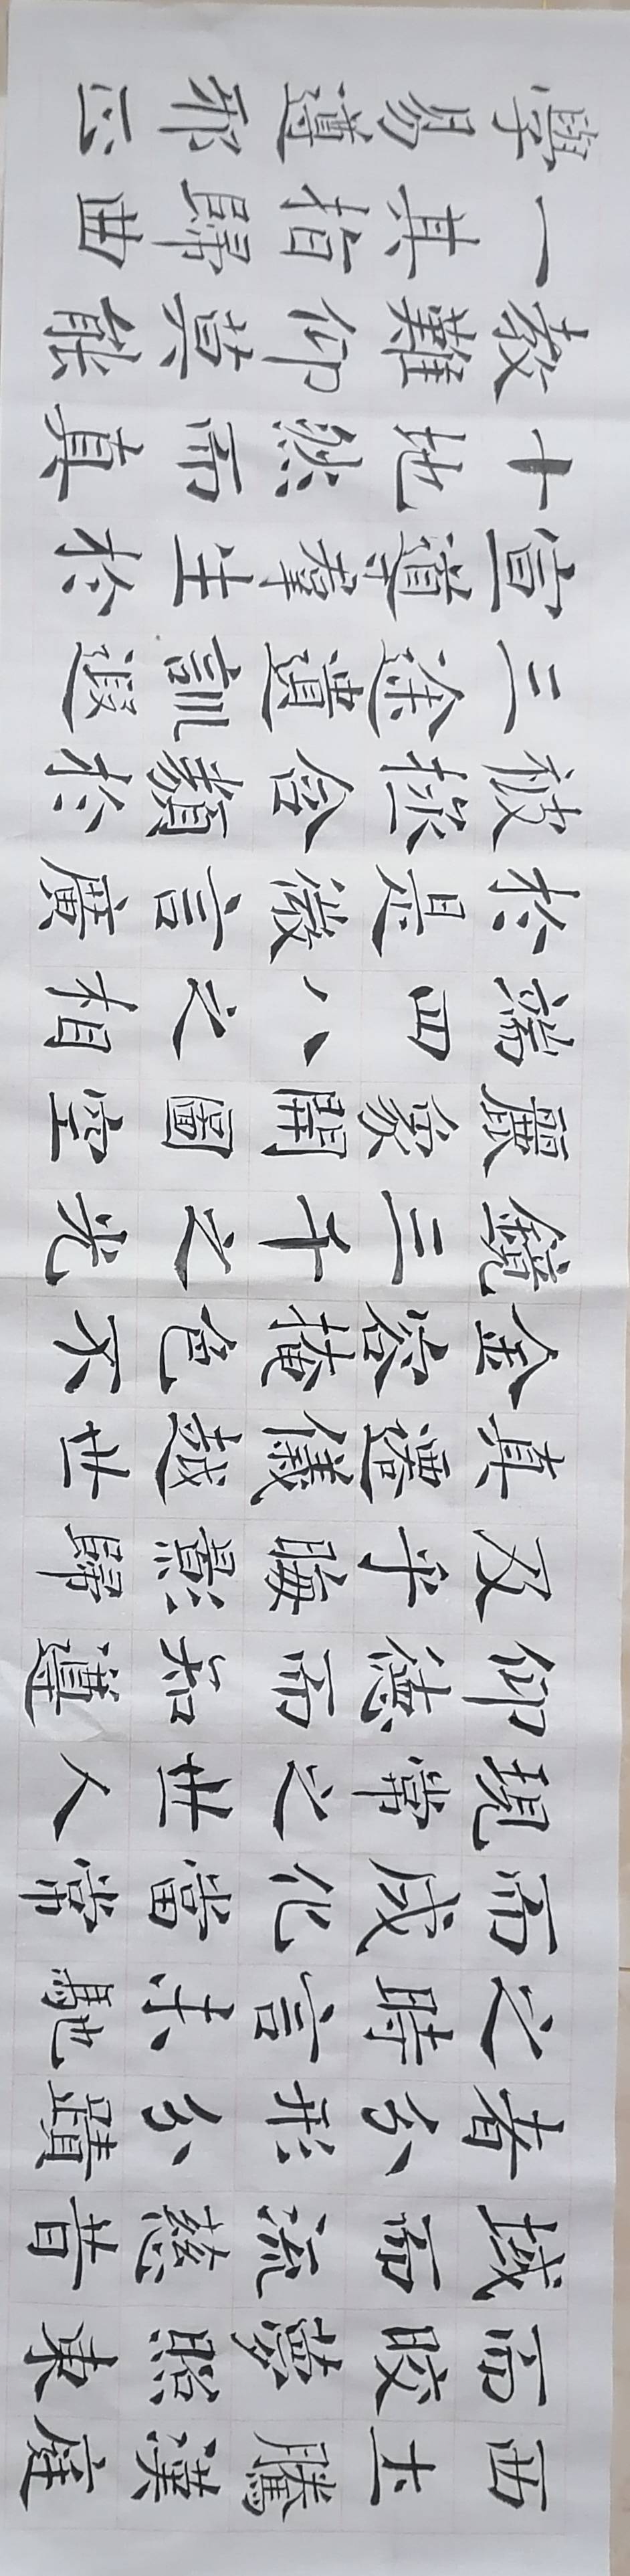 西土騰漢庭
而皎夢照東
域而流慈昔
者分形分蹟
之時言未馳
而成化當常
現常之世人
仰德而知遵
及乎晦影歸
真遷儀越世
金容掩色不
鏡三千之光
麗象開圖空
端四八之相
於是微言廣
被拯含類於
三途遺訓遐
宣導羣生於
十地然而真
教難仰莫能
一其指歸曲
學易遵邪正